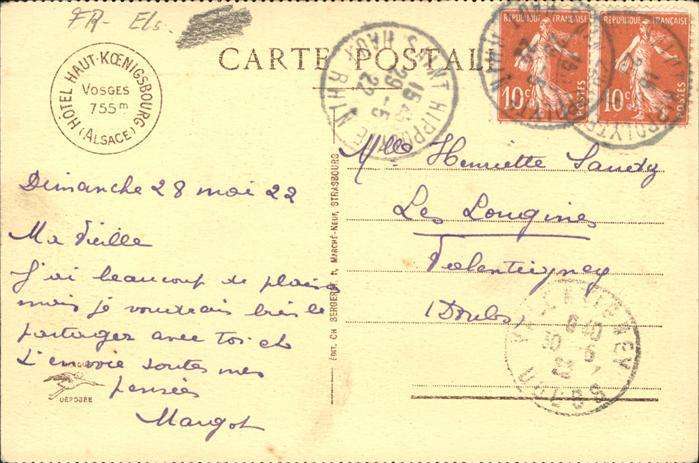 FR- Els.
CARTE POSTALE
HOTEL HAUT-KŒNIGSBOURG
VOSGES
755m
(ALSACE)
SAINT HIPPOLYTE
HAUT RHIN
15 45
29 - 5
22
RÉPUBLIQUE FRANÇAISE
10c
POSTES
RÉPUBLIQUE FRANÇAISE
10c
POSTES
Dimanche 28 mai 22
Ma Vieille
J'ai beaucoup de plaisir
mais je voudrais bien le
partager avec toi et
t'envoie toutes mes
pensées
Margot
DÉPOSÉE
ÉDIT. CH. BERGERET, MARCHÉ-NEUF, STRASBOURG
Mlle Henriette
Les Longines
Valentigney
(Doubs)
VALENTIGNEY
30 - 5
DOUBS